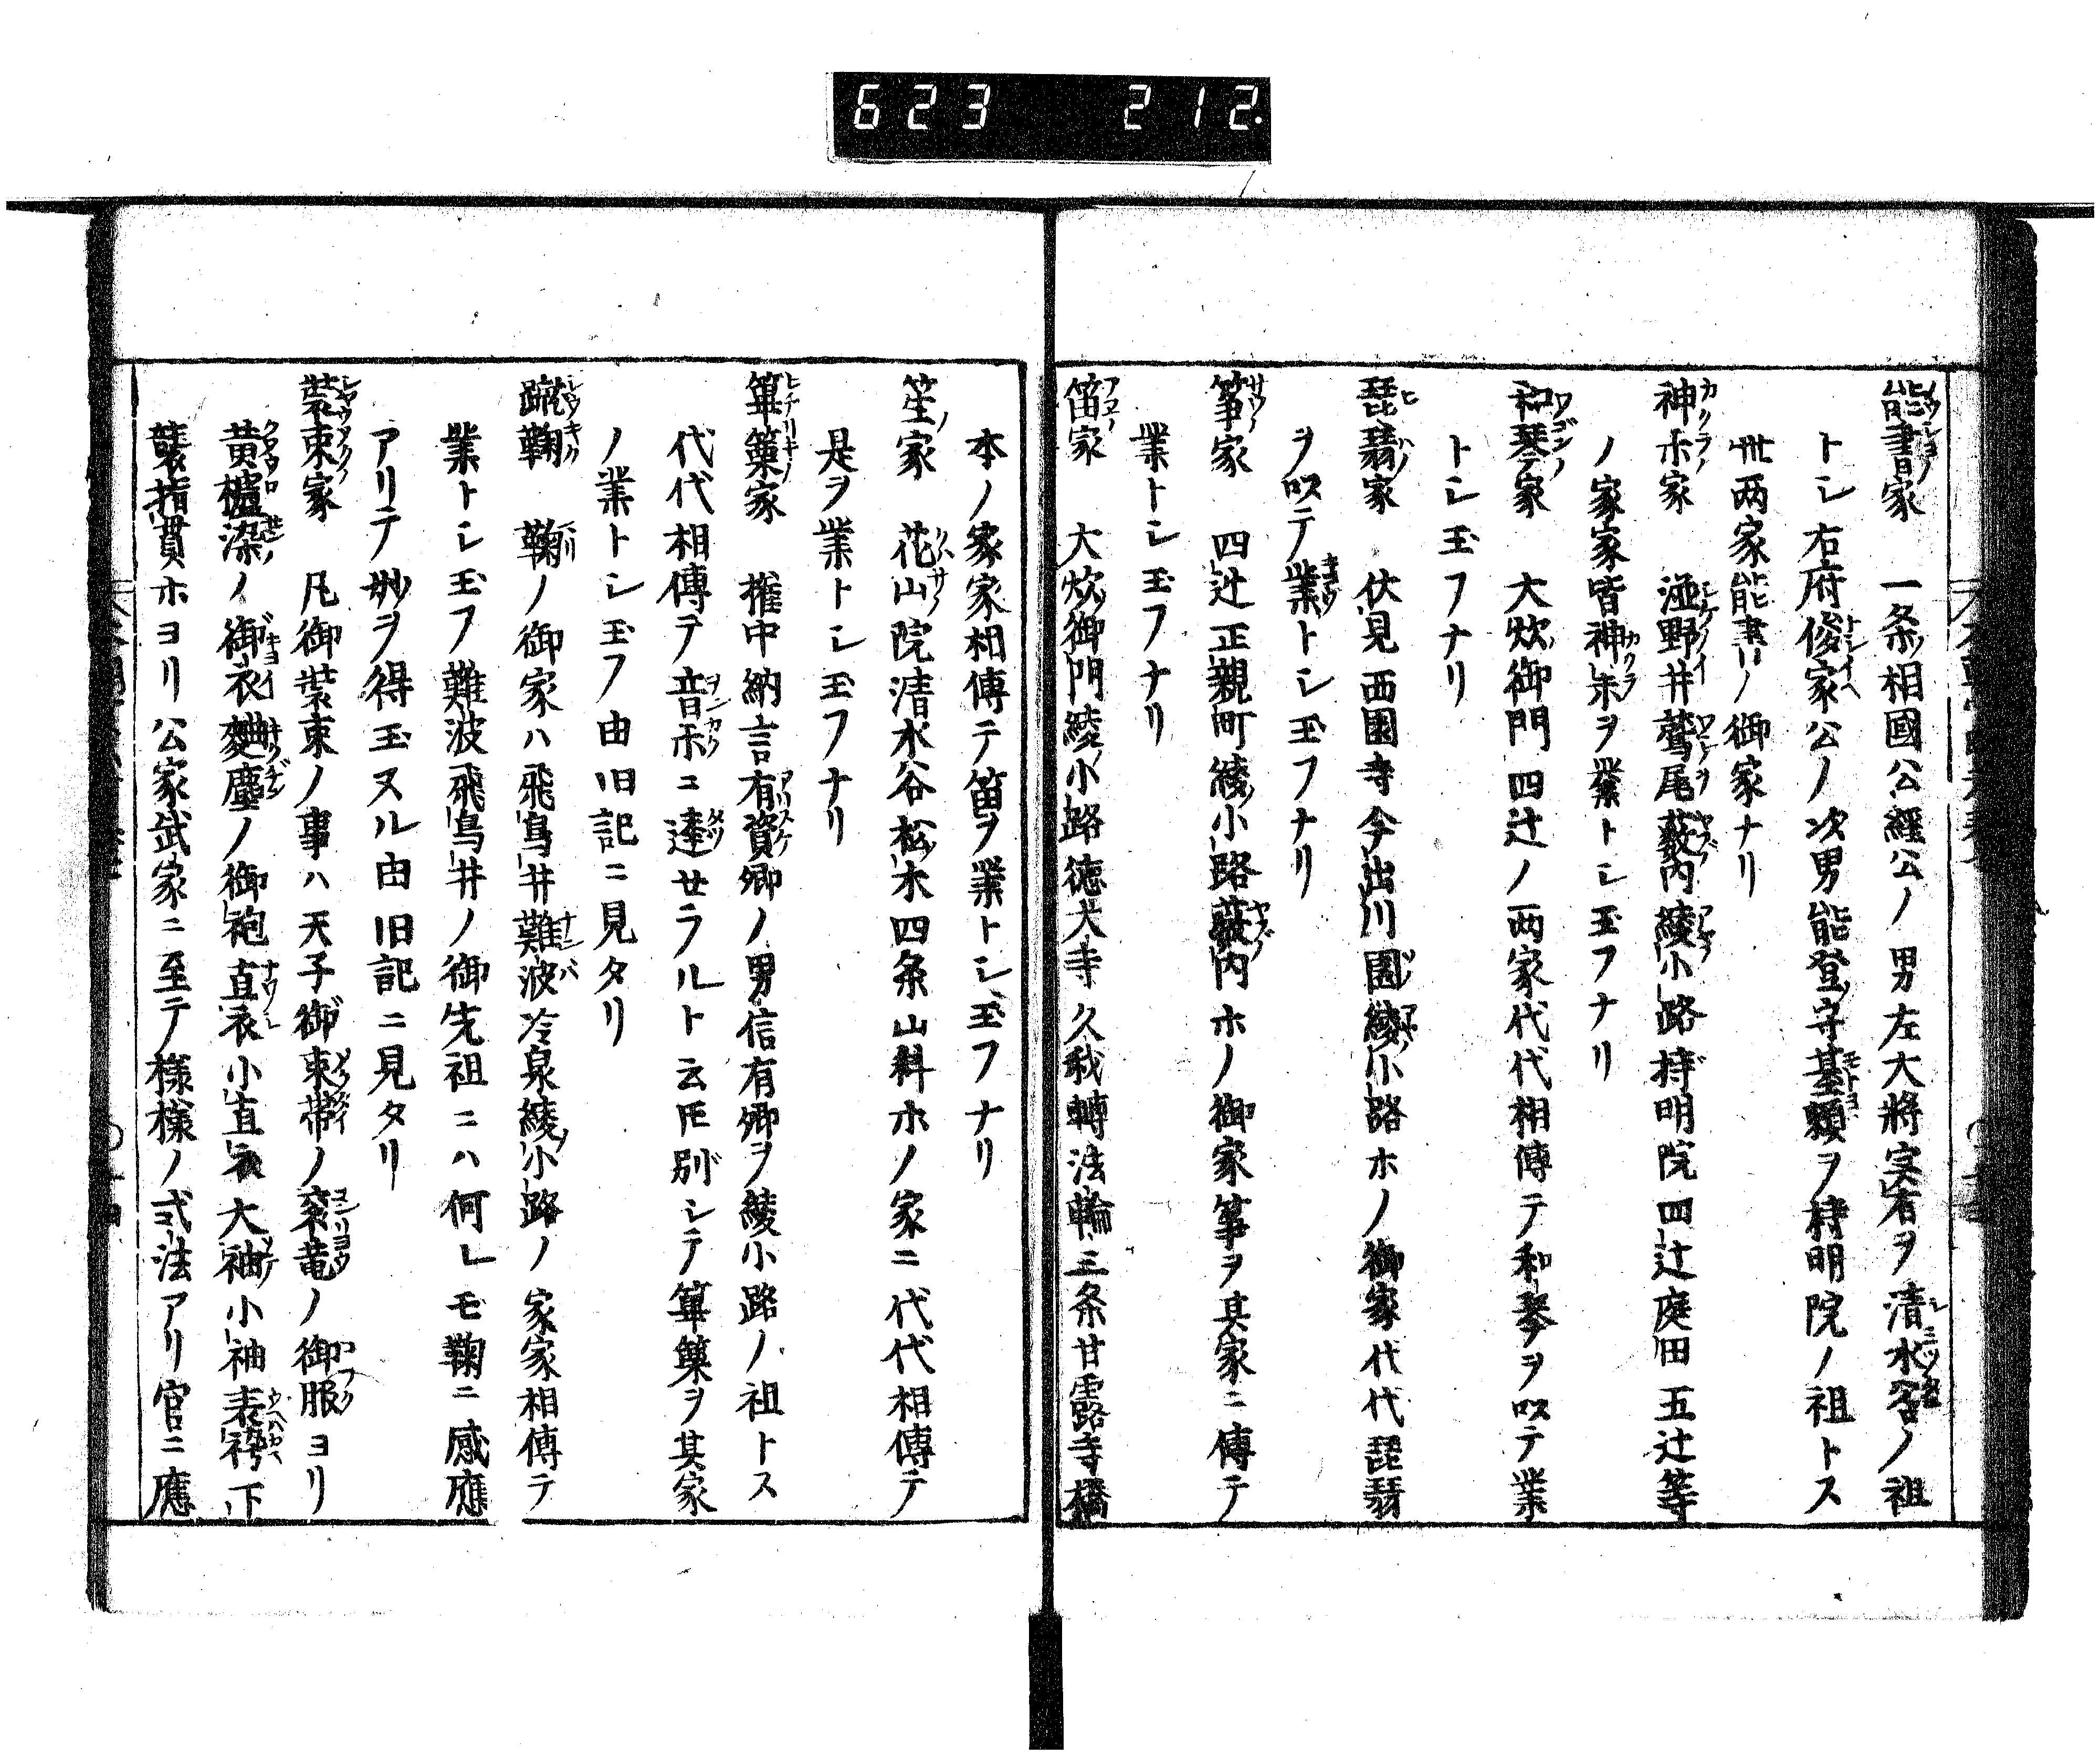 623 212
能書家 一条相國公經公ノ男左大將実有ヲ清水谷ノ祖
トシ右府俊家公ノ次男能登守基頼ヲ持明院ノ祖トス
此两家能書ノ御家ナリ
神楽家 滋野井鷲尾藪内綾小路持明院四辻庭田五辻等
ノ家家皆神楽ヲ業トシ玉フナリ
和琴家 大炊御門四辻ノ两家代代相傳テ和琴ヲ以テ業
トシ玉フナリ
琵琶家 伏見西園寺今出川園綾小路ホノ御家代代琵琶
ヲ以テ業トシ玉フナリ
筝家 四辻正親町綾小路藪内ホノ御家筝ヲ其家ニ傳テ
業トシ玉フナリ
笛家 大炊御門綾小路徳大寺久我轉法輪三条甘露寺橋
本ノ家家相傳テ笛ヲ業トシ玉フナリ
笙家 花山院清水谷松木四条山科ホノ家ニ代代相傳テ
是ヲ業トシ玉フナリ
篳篥家 権中納言有資卿ノ男信有卿ヲ綾小路ノ祖トス
代代相傳テ音楽ニ達セラルト云𪜈別シテ篳篥ヲ其家
ノ業トシ玉フ由旧記ニ見タリ
蹴鞠 鞠ノ御家ハ飛鳥井難波冷泉綾小路ノ家家相傳テ
業トシ玉フ難波飛鳥井ノ御先祖ニハ何レモ鞠ニ感應
アリテ妙ヲ得玉ヌル由旧記ニ見タリ
装束家 凡御装束ノ事ハ天子御束帯ノ袞竜ノ御服ヨリ
黄櫨染ノ御衣麹塵ノ御袍直衣小直衣大袖小袖表袴下
襲指貫ホヨリ公家武家ニ至テ様様ノ式法アリ官ニ應